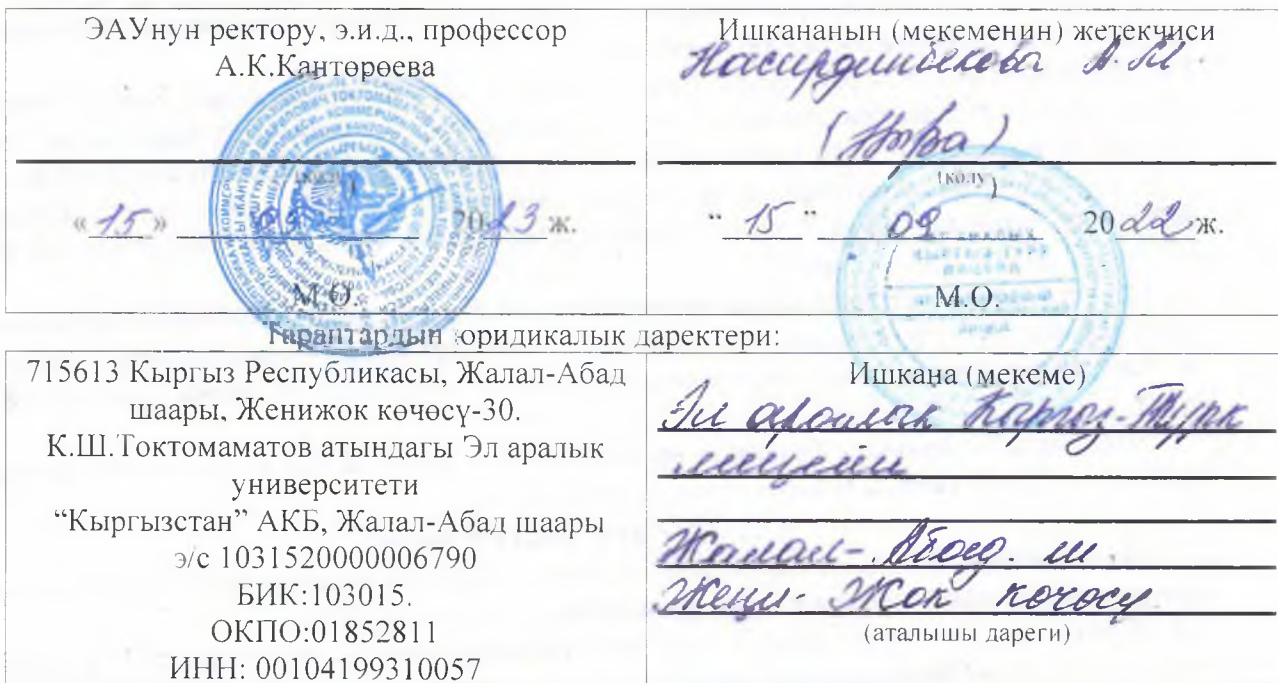 ЭАУнун ректору, э.и.д., профессор
А.К.Кантөрөева
«15» 2023 ж.
М.О.
Ишкананын (мекеменин) жетекчиси
Насирдинбекова А.М.
(колу)
"15" 09 2022 ж.
М.О.
Тараптардын юридикалык даректери:
715613 Кыргыз Республикасы, Жалал-Абад
шаары, Женижок көчөсү-30.
К.Ш.Токтомаматов атындагы Эл аралык
университети
“Кыргызстан” АКБ, Жалал-Абад шаары
э/с 1031520000006790
БИК:103015.
ОКПО:01852811
ИНН: 00104199310057
Ишкана (мекеме)
Эл аралык Кыргыз-Түрк
лицейи
Жалал-Абад. ш.
Жеңи-Жок көчөсү
(аталышы дареги)